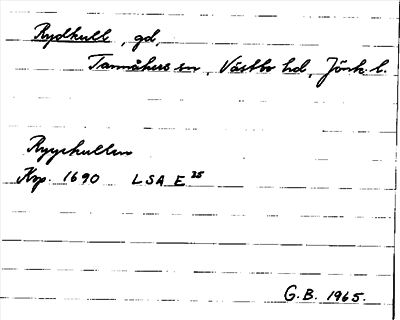 Rydkull, gd,
Tannåkers sn, Västbo hd, Jönk. l.
Ryyrkullen
Krp. 1690 LSA E 25
G.B. 1965.